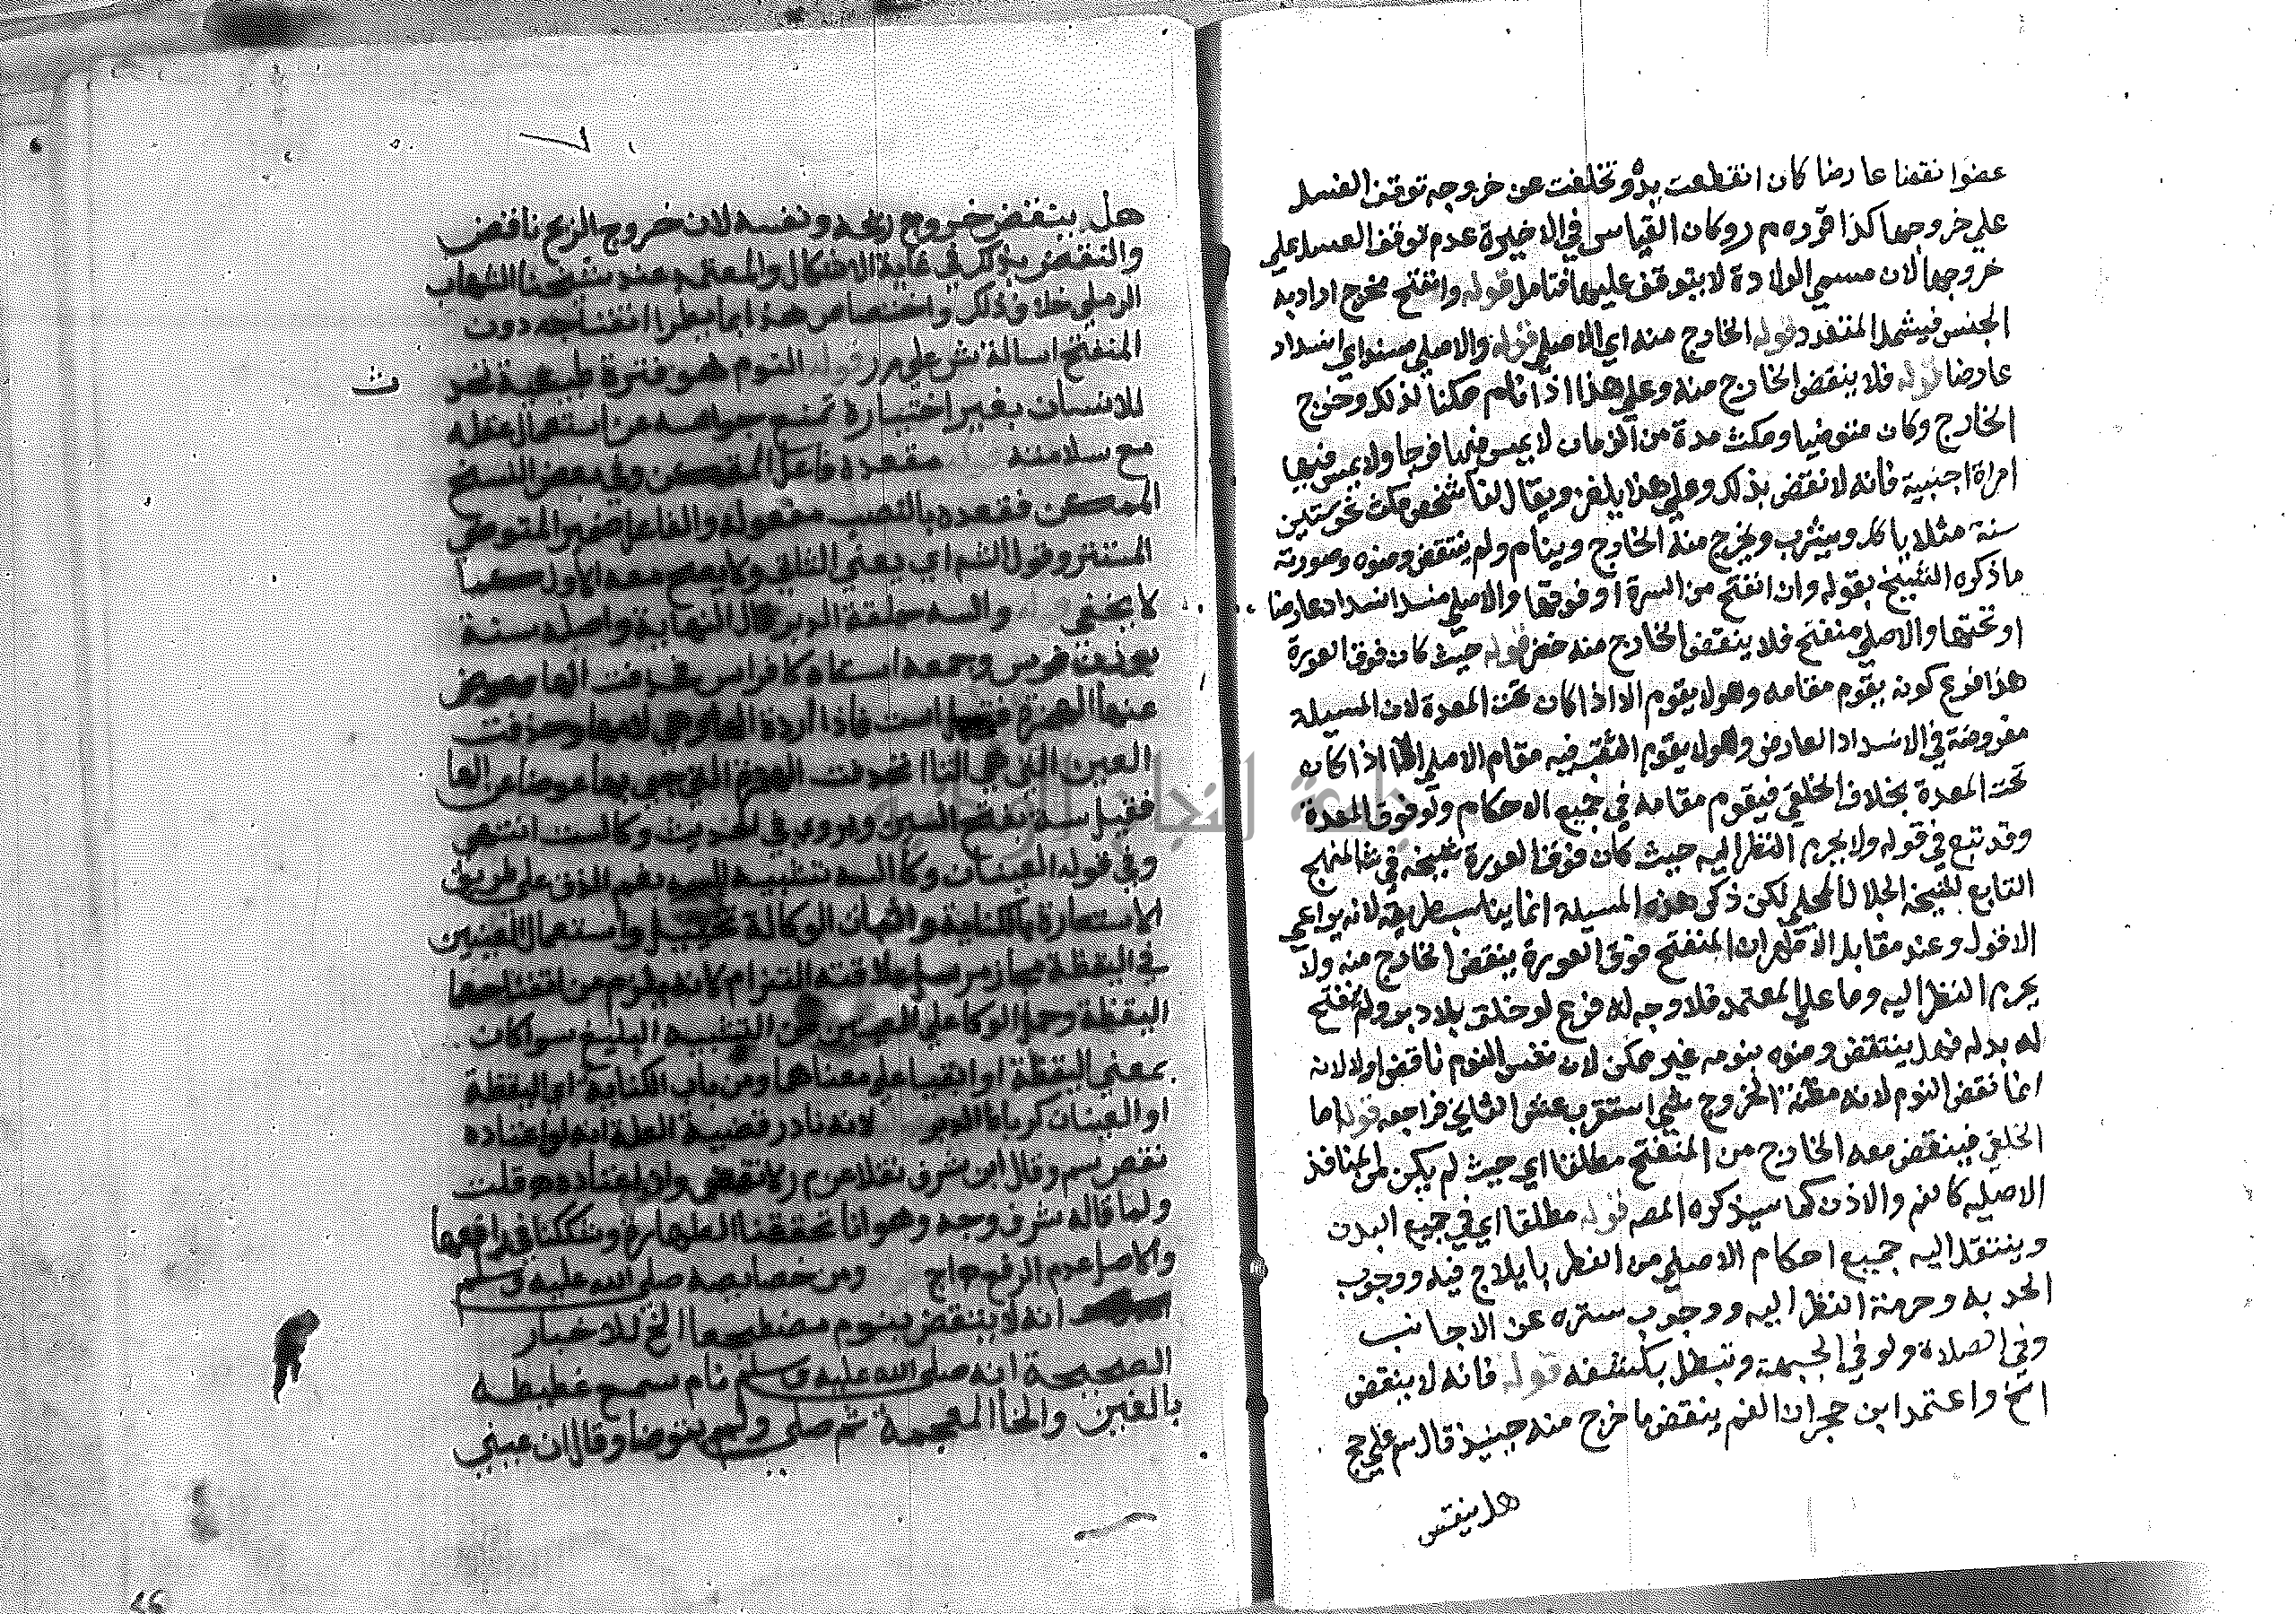 عضوا نقضنا عارضا كان انقطعت يده وتخلفت عن خروجه توقف الغسل
على خروجها كذا قرره م ر وكان القياس في الاخيرة عدم توقف الغسل على
خروجها لان مسمى الولادة لا يتوقف عليها فتامل قوله وانفتح مخرج اراد به
الجنس فيشمل المتعدد قوله الخارج منه اي الاصلي قوله والاصلي منسد اي انسداد
عارضا قوله فلا ينقض الخارج منه وعلى هذا اذا نام ممكنا لذلك وخرج
الخارج وكان متوضيا ومكث مدة من الزمان لا يمس فيها فرجا ولا يمس فيها
امراة اجنبية فانه لا نقض بذلك وعلى هذا يلغز ويقال لنا شخص مكث نحو ستين
سنة مثلا ياكل ويشرب ويخرج منه الخارج وينام ولم ينتقض وضوه وصورته
ما ذكره الشيخ بقوله وان انفتح من السرة او فوقها والاصلي منسد انسدادا عارضا
او تحتها والاصلي منفتح فلا ينقض الخارج منه خض قوله حيث كان فوق العورة
هذا فرع كونه يقوم مقامه وهو لا يقوم الا اذا كان تحت المعدة لان المسيلة
مفروضة في الانسداد العارض وهو لا يقوم المنفتح فيه مقام الاصلي الا اذا كان
تحت المعدة بخلاف الخلقي فيقوم مقامه في جميع الاحكام ولو فوق المعدة
وقد تبع في قوله ولا يحرم النظر اليه حيث كان فوق العورة شيخه في شا المنهج
التابع لشيخه الجلال المحلي لكن ذكر هذه المسيلة انما يناسب طريقه لانه يراعي
الاقول وعند مقابل الاظهران المنفتح فوق العورة ينقض الخارج منه ولا
يحرم النظر اليه وما على المعتمد فلا وجه له فرع لو خلق بلا دبر ولم ينفتح
له بدله فهل ينتقض وضوه بنومه غير ممكن لان نفس النوم ناقض اولا لانه
انما نقض النوم لانه مظنة لخروج شي استقرب عش الثاني فراجعه قوله اما
الخلقي فينقض معه الخارج من المنفتح مطلقا اي حيث لم يكن من المنافذ
الاصليه كالفم والاذن كما سيذكره المصه قوله مطلقا اي في جميع البدن
وينتقل اليه جميع احكام الاصلي من الفطر بايلاج فيه ووجوب
الحد به وحرمة النظر اليه ووجوب ستره عن الاجانب
وفي الصلاة ولو في الجبهة وتبطل بكشفه قوله فانه لا ينقض
الخ واعتمد ابن حجر ان الفم ينقض ما خرج منه حينيذ قال سم على حج
هل ينقض
هل ينقض خروج ريحه ونفسه لان خروج الريح ناقض
والنقض بذلك في غاية الاشكال والمعتمد عند شيخنا الشهاب
الرملي خلاف ذلك واختصاص هذا بما يطرا انفتاحه دون
المنفتح اصالة ش على م ر قوله النوم هو فترة طبيعية تضر
للانسان بغير اختياره تمنع حواسه عن استعمال عقله
مع سلامته مقعده فاعل الممكن وفي بعض النسخ
الممكن فقعده بالنصب مفعوله والفاعل ضمير المتوضي
المستتر وقول الش اي يعني الثاني ولا يصح معه الاول كما
لا يخفى والسه حلقة الدبر قال النهاية واصله سنة
بوزن فرس وجمعه استاه كافراس فحذفت الها وعوض
عنها الهمزة فقيل است فاذا رددت الها وهي لامها وحذفت
العين التي هي التا انحذفت الهمزة التي جي بها عوضا عن الها
فقيل سه بفتح السين ويروي في الحديث وكا الست انتهى
وفي قوله العينان وكا السه تشبيه السه بفم الزق على طريق
الاستعارة بالكناية واثبات الوكا له تخييل واستعمال العينين
في اليقظة مجاز مرسل علاقته التزام لانه يلزم من انفتاحهما
اليقظة وحمل الوكا على العينين من التشبيه البليغ سوا كان
بمعنى اليقظة او ابقيا على معناهما ومن باب الكناية اي اليقظة
او العينان كرباط الدبر لانه نادر قضية العلة انه لو اعتاده
نقض سم وقال ابن شرف نقلا عن م ر لا نقض وان اعتاده قلت
ولما قاله شرف وجه وهو انا تحققنا الطهارة وشككنا في رافعها
والاصل عدم الرفع حاج ومن خصايصه صلى الله عليه وسلم
انه لا ينتقض بنوم مضطجعا الخ للاخبار
الصحيحة انه صلى الله عليه وسلم نام سمع غطيطه
بالغين والخا المعجمة ثم صلى ولم يتوضا وقال ان عيني